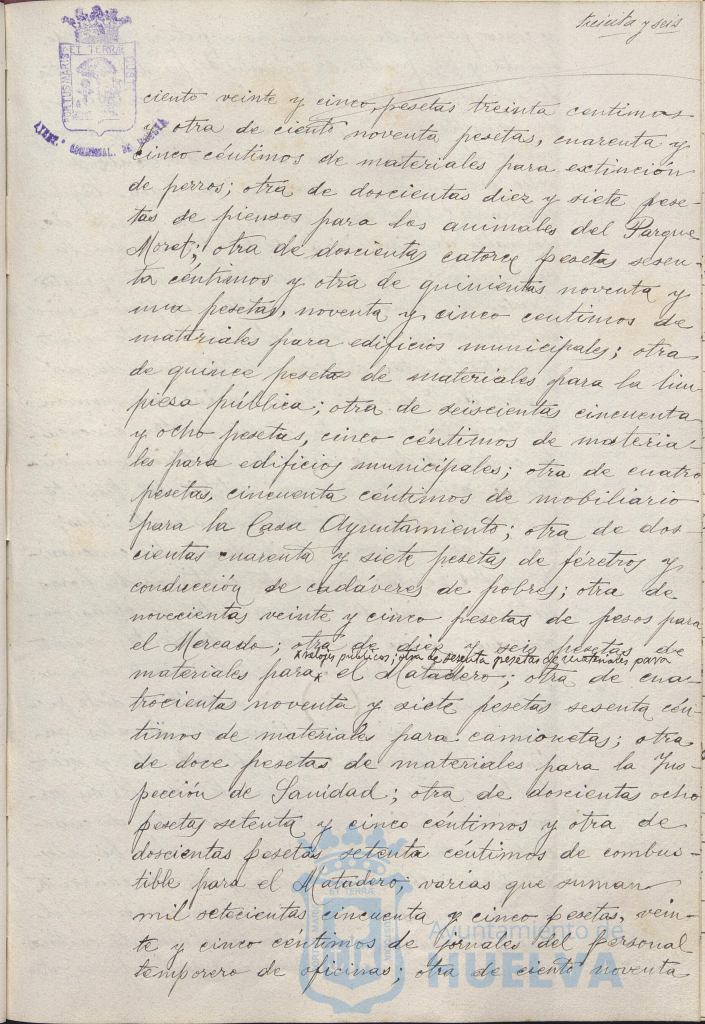 treinta y seis
PORTUS MARIS ET TERRAE CUSTODIA
AYUNT.º CONSTITUCIONAL. DE HUELVA
ciento veinte y cinco pesetas treinta centimos
y otra de ciento noventa pesetas, cuarenta y
cinco céntimos de materiales para extinción
de perros; otra de doscientas diez y siete pese-
tas de piensos para los animales del Parque
Moret; otra de doscientas catorce pesetas sesen-
ta céntimos y otra de quinientas noventa y
una pesetas, noventa y cinco centimos de
materiales para edificios municipales; otra
de quince pesetas de materiales para la lim
piesa pública; otra de seiscientas cincuenta
y ocho pesetas, cinco céntimos de materia-
les para edificios municipales; otra de cuatro
pesetas, cincuenta céntimos de mobiliario
para la Casa Ayuntamiento; otra de dos-
cientas cuarenta y siete pesetas de féretros y
conducción de cadáveres de pobres; otra de
novecientas veinte y cinco pesetas de pesos para
el Mercado; otra de diez y seis pesetas de
x relojes públicos; otra de sesenta pesetas de materiales para
materiales para x el Matadero; otra de cua-
trocientas noventa y siete pesetas sesenta cén-
timos de materiales para camionetas; otra
de doce pesetas de materiales para la Ins-
pección de Sanidad; otra de doscientas ocho
pesetas setenta y cinco céntimos y otra de
doscientas pesetas setenta céntimos de combus-
tible para el Matadero; varias que suman
mil setecientas cincuenta y cinco pesetas, vein-
te y cinco céntimos de jornales del personal
temporero de oficinas; otra de ciento noventa
Ayuntamiento de
HUELVA